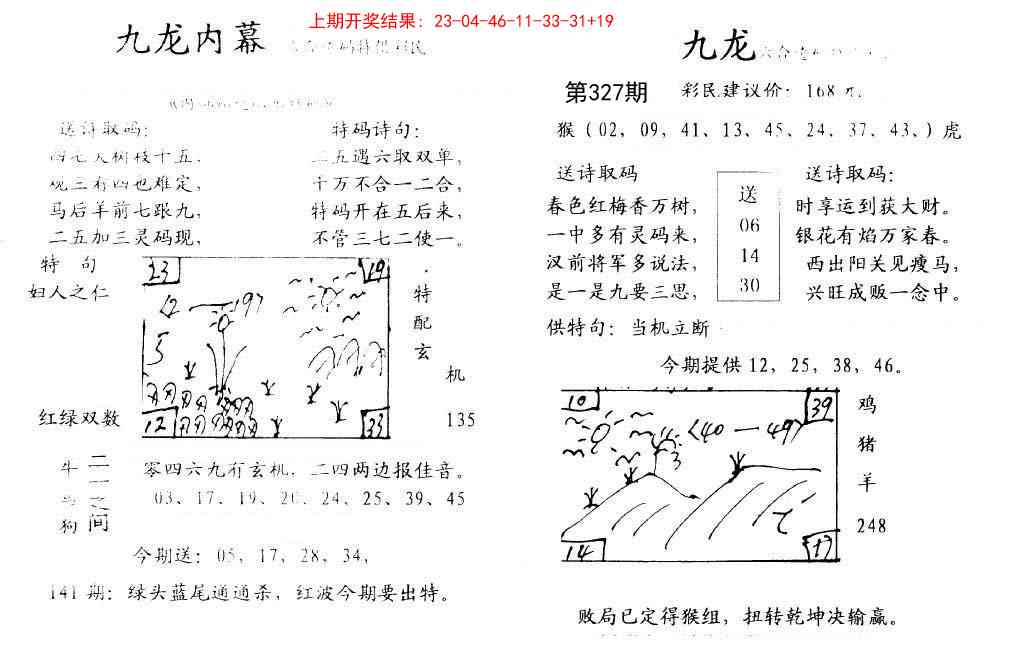 上期开奖结果：23-04-46-11-33-31+19
九龙内幕
送诗取码：
四七天树枝十五，
观三有四也难定，
马后羊前七跟九，
二五加三灵码现，
特码诗句：
二五遇六取双单，
千万不合一二合，
特码开在五后来，
不管三七二使一。
特 句
妇人之仁
23
19
12 — 19
5
12
33
特
配
玄
机
红绿双数
135
牛
狗
二
一
之
间
零四六九有玄机，二四两边报佳音。
03、17、19、20、24、25、39、45
今期送：05，17，28，34，
141 期：绿头蓝尾通通杀，红波今期要出特。
九龙
第327期
彩民建议价：168 元.
猴（02、09、41、13、45、24、37、43、）虎
送诗取码
春色红梅香万树，
一中多有灵码来，
汉前将军多说法，
是一是九要三思，
送
06
14
30
送诗取码：
时享运到获大财。
银花有焰万家春。
西出阳关见瘦马，
兴旺成贩一念中。
供特句：当机立断
今期提供 12，25，38，46。
10
39
<40 — 49>
3
14
17
鸡
猪
羊
248
败局已定得猴组，扭转乾坤决输赢。